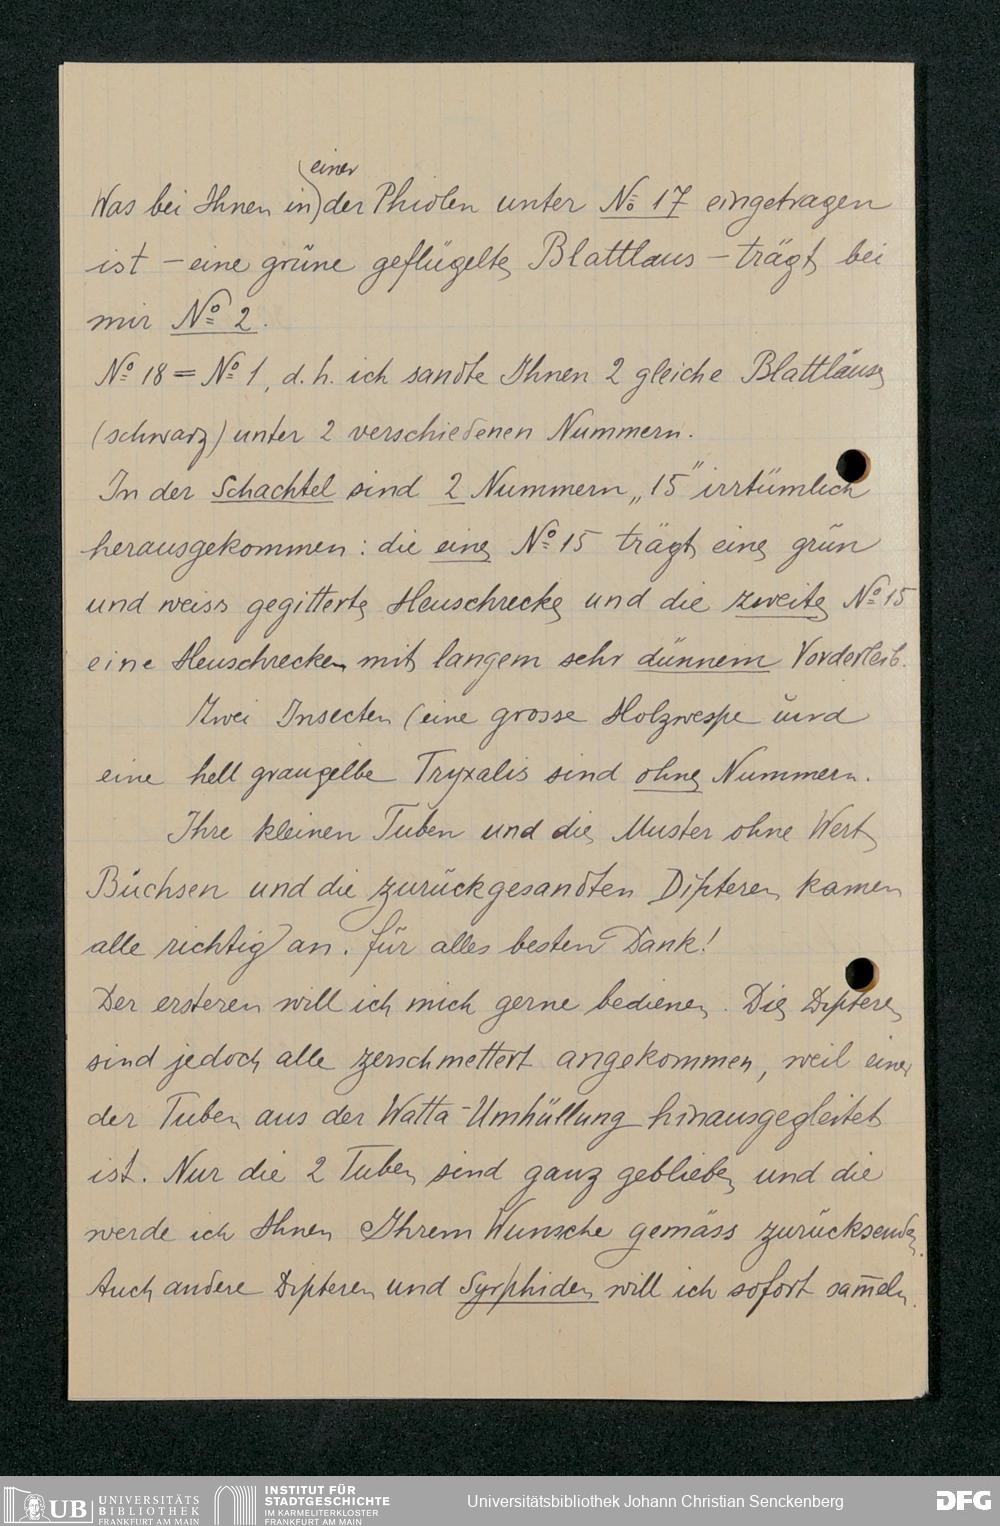 einer
Was bei Ihnen in der Phiolen unter № 17 eingetragen
ist – eine grüne geflügelte Blattlaus – trägt bei
mir № 2.
№ 18 = № 1, d. h. ich sandte Ihnen 2 gleiche Blattläuse
(schwarz) unter 2 verschiedenen Nummern.
In der Schachtel sind 2 Nummern „15" irrtümlich
herausgekommen: die eine № 15 trägt eine grün
und weiss gegitterte Heuschrecke und die zweite № 15
eine Heuschrecken mit langem sehr dünnem Vorderleib.
Zwei Insecten (eine grosse Holzwespe und
eine hell graugelbe Tryxalis sind ohne Nummern.
Ihre kleinen Tuben und die Muster ohne Wert
Büchsen und die zurückgesandten Dipteren kamen
alle richtig an. für alles besten Dank!
Der ersteren will ich mich gerne bedienen. Die Dipteren
sind jedoch alle zerschmettert angekommen, weil einer
der Tuben aus der Watta-Umhüllung hinausgegleitet
ist. Nur die 2 Tuben sind ganz geblieben und die
werde ich Ihnen Ihrem Wunsche gemäss zurücksenden.
Auch andere Dipteren und Syrphiden will ich sofort sam̄eln.
UB UNIVERSITÄTS
BIBLIOTHEK
FRANKFURT AM MAIN
INSTITUT FÜR
STADTGESCHICHTE
IM KARMELITERKLOSTER
FRANKFURT AM MAIN
Universitätsbibliothek Johann Christian Senckenberg
DFG